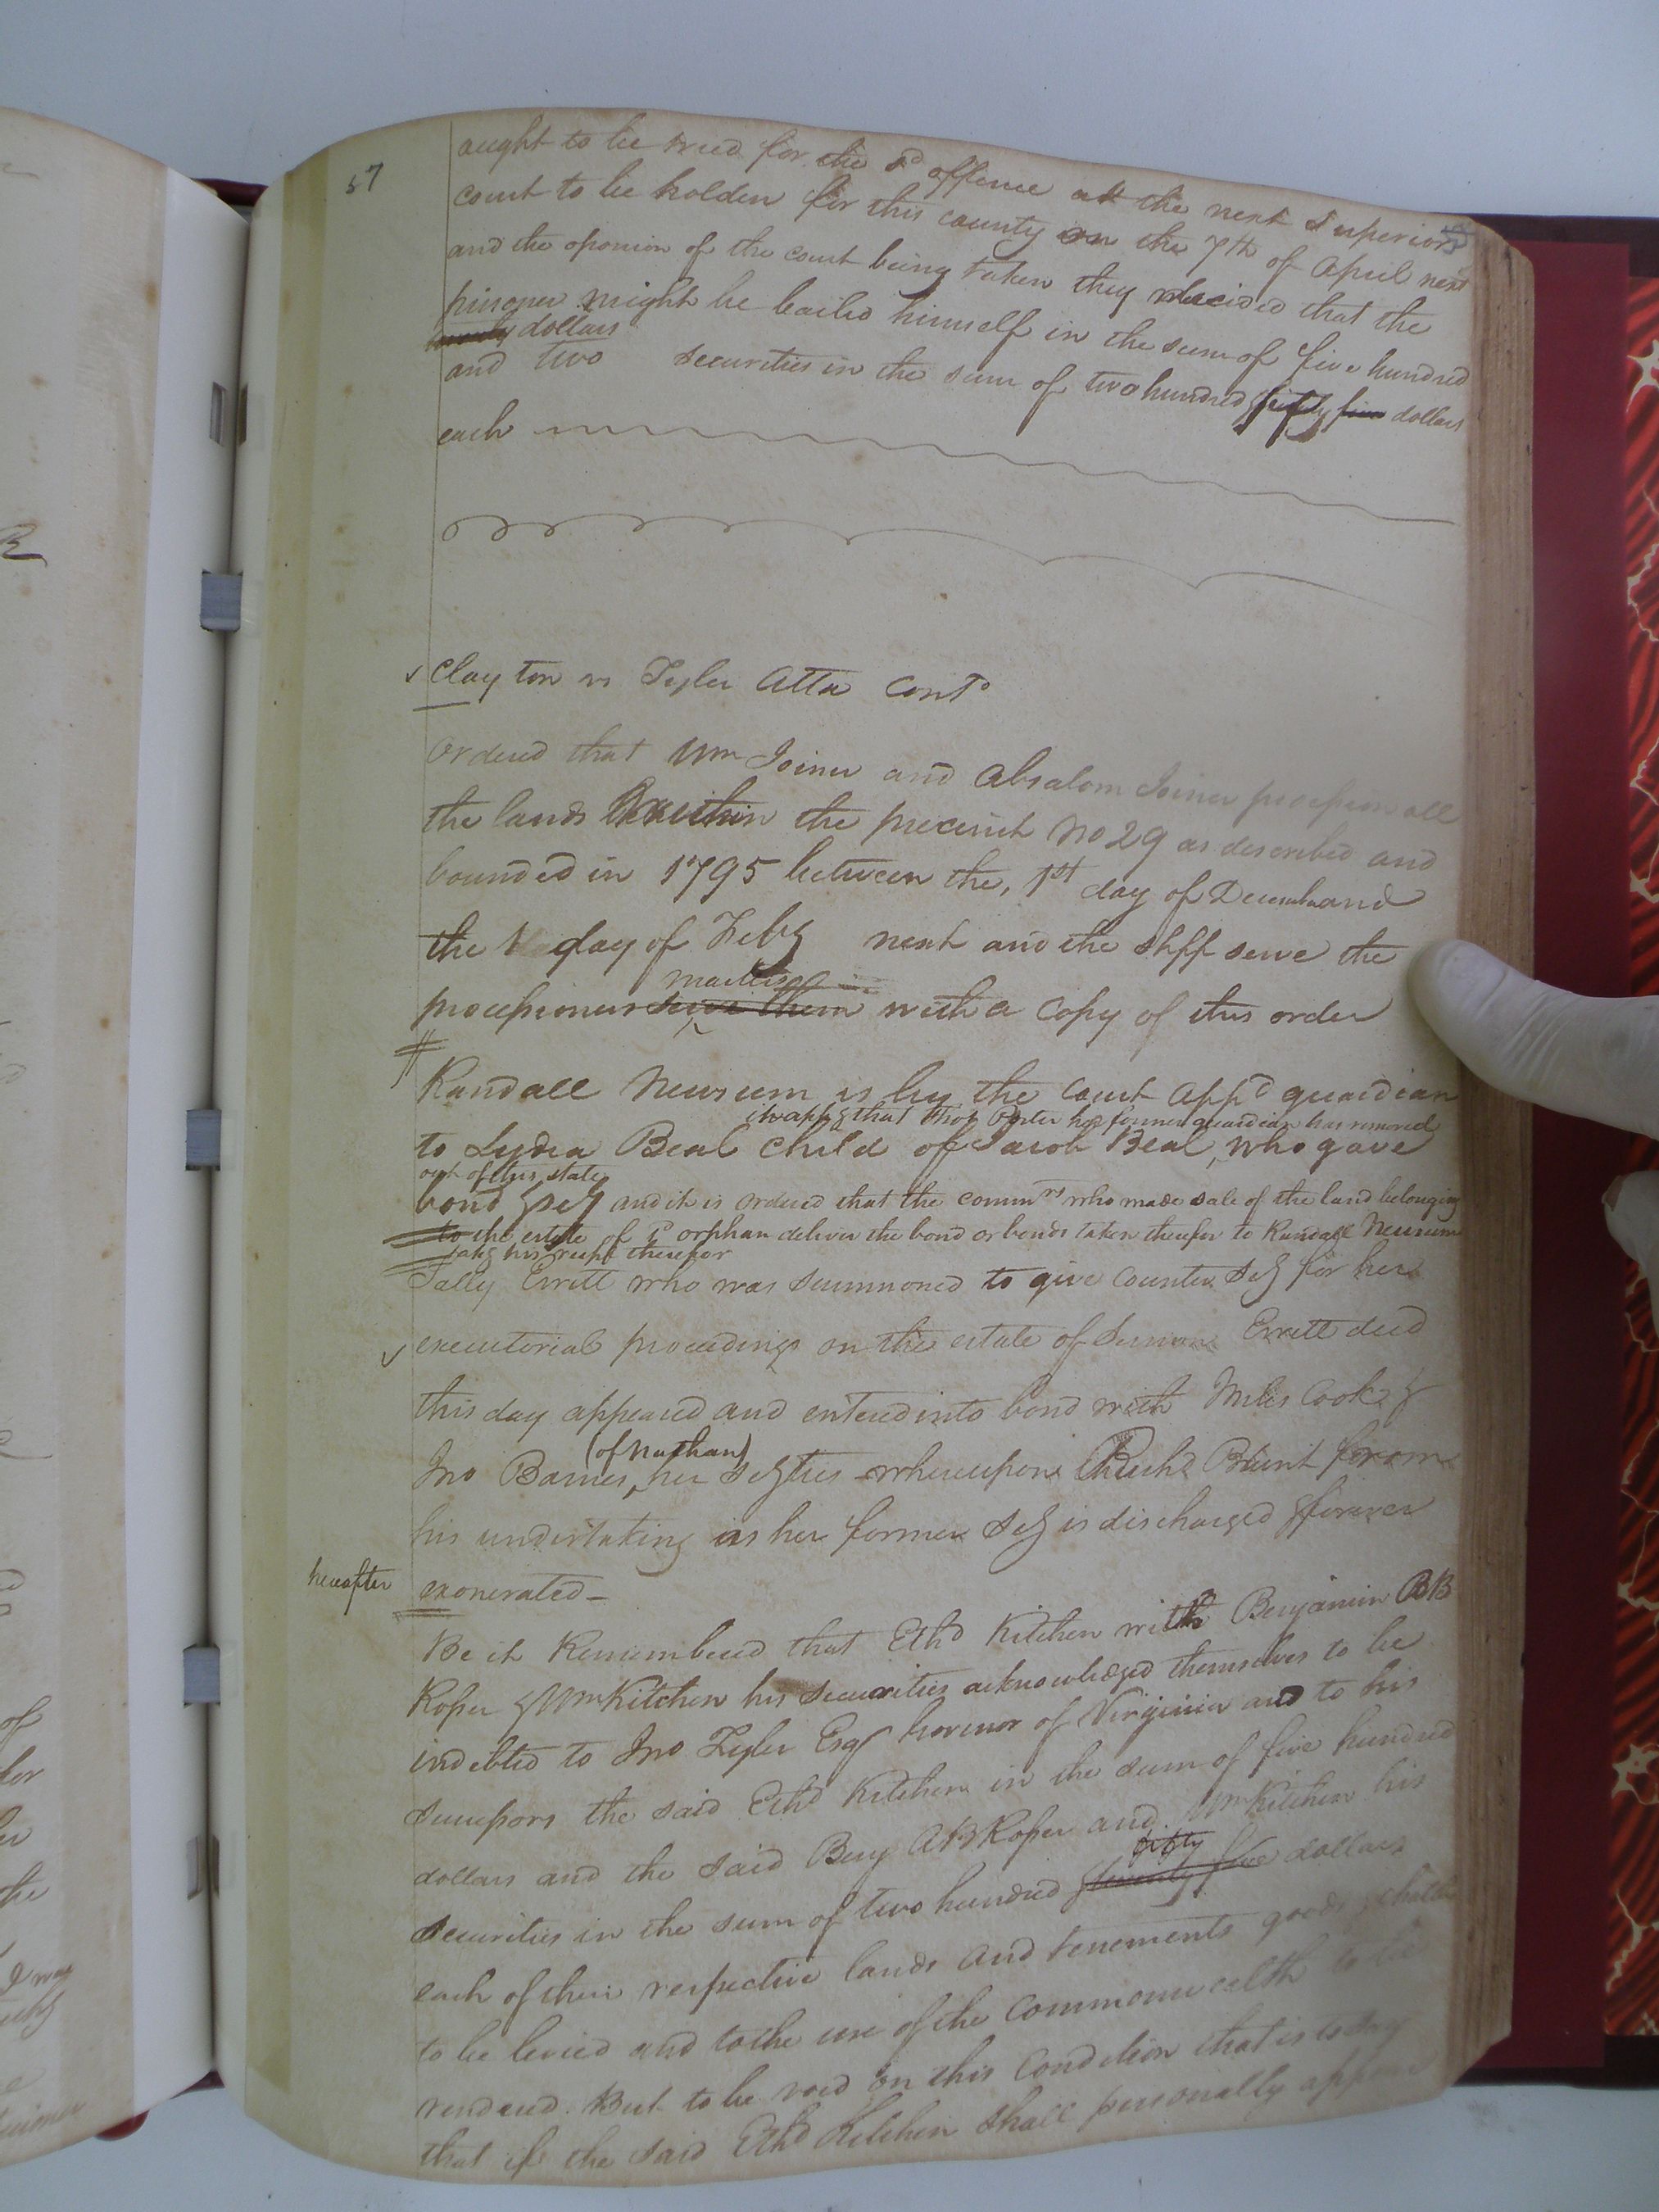 57
aught to be tried for the sd offence at the next superior
court to be holden for this county on the 7th of April next
and the oponion of the court being taken they decided that the
prisoner might be bailed himself in the sum of five hundred
dollars
and two securities in the sum of two hundred & fifty five dollars
each
Clayton vs Tyler Atta Contd
Ordered that Wm Joiner and Absalom Joiner procession all
the lands within the precinct No 29 as described and
bounded in 1795 between the 1st day of December and
the day of Feby next and the shff serve the
processioners serve them with a Copy of this order
Randall Newsum is by the Court appd guardian
it appg that Thos Porter her former guardian has removed
to Lydia Beal Child of Jacob Beal, who gave
out of this state
bond & sey and it is ordered that the commrs who made sale of the land belonging
to the estate of sd orphan deliver the bond or bonds taken therefor to Randall Newsum
takg his recpt therefor
Sally Errett who was summoned to give Counter sey for her
executorial proceedings on the estate of Errett decd
this day appeared and entered into bond with Miles Cook &
(of Nathan)
Jno Barnes, her seyties whereupon Richd Blunt from
his undertaking as her former sey is discharged & forever
hereafter exonerated
Be it Remembered that Ethd Kitchen with Benjamin AB
Roper & Wm Kitchen his securities acknowledged themselves to be
indebted to Jno Tyler Esqr Governor of Virginia and to his
successors the said Ethd Kitchen in the sum of five hundred
dollars and the said Benj AB Roper and Wm Kitchen his
fifty
securities in the sum of two hundred & twenty five dollars
each of their respective lands and tenements goods & chattles
to be levied and to the use of the Commonwealth to be
rendered. But to be void on this Condition that is to say
that if the said Ethd Kitchen shall personally appear